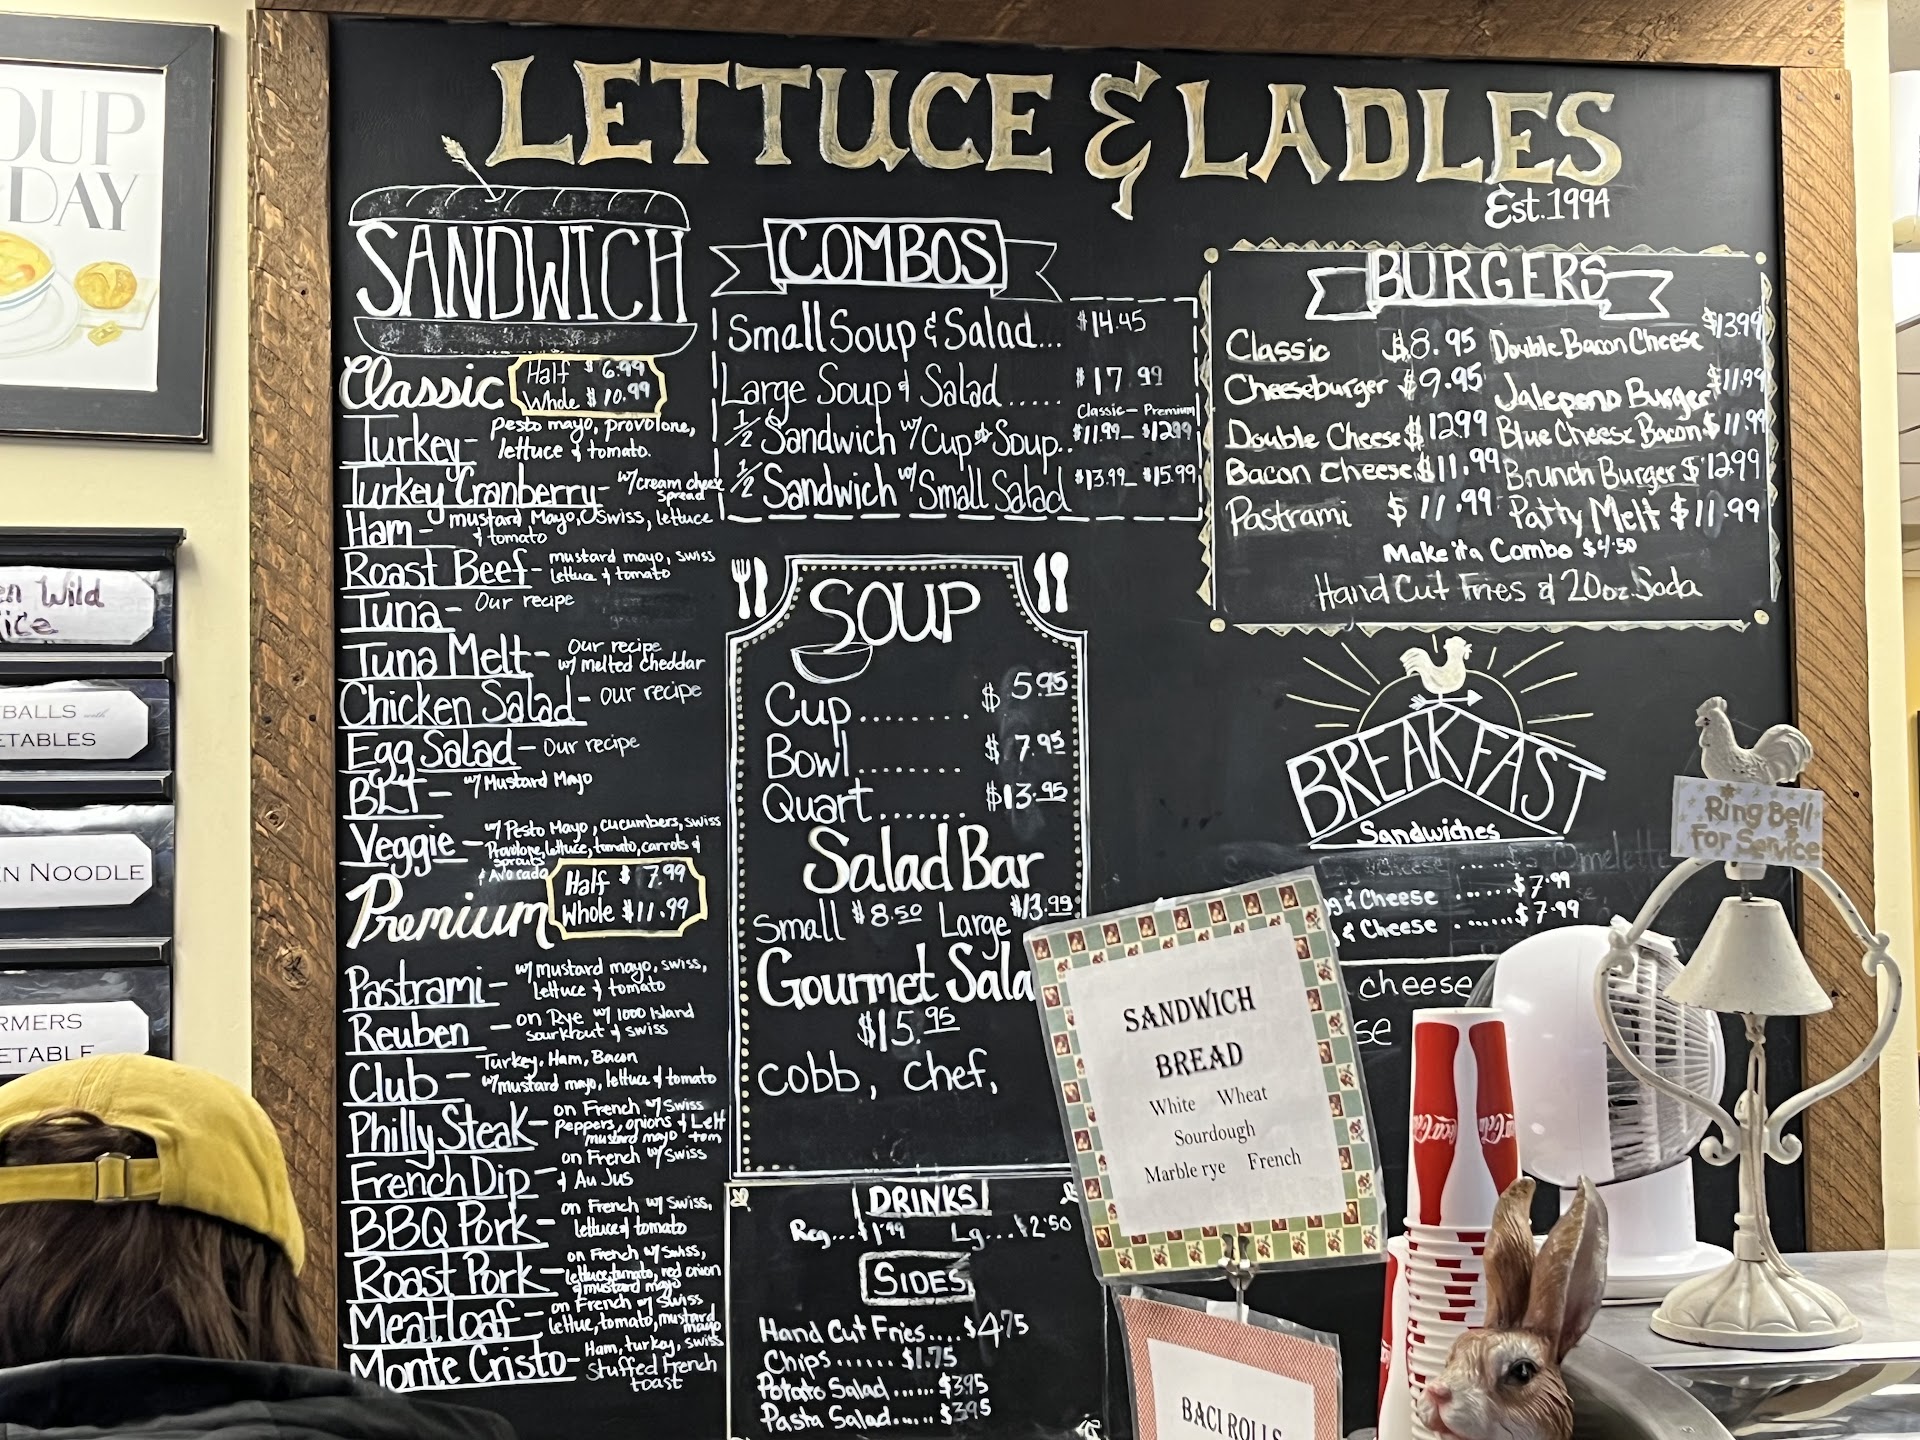 LETTUCE & LADLES
Est. 1994
OUP
DAY
en Wild
ice
BALLS with
ETABLES
N NOODLE
RMERS
ETABLE
SANDWICH
Classic
Half $6.99
Whole $10.99
Turkey - pesto mayo, provolone,
lettuce & tomato.
Turkey Cranberry - w/cream cheese
spread
Ham - mustard Mayo, Swiss, lettuce
& tomato
Roast Beef - mustard mayo, swiss
lettuce & tomato
Tuna - Our recipe
Tuna Melt - Our recipe
w/ melted cheddar
Chicken Salad - our recipe
Egg Salad - Our recipe
BLT - w/ Mustard Mayo
Veggie - w/ Pesto Mayo, cucumbers, swiss
Provolone, lettuce, tomato, carrots &
sprouts
& Avocado
Premium
Half $7.99
Whole $11.99
Pastrami - w/ mustard mayo, swiss,
lettuce & tomato
Reuben - on Rye w/ 1000 Island
sourkrout & swiss
Club - Turkey, Ham, Bacon
w/mustard mayo, lettuce & tomato
Philly Steak - on French w/ Swiss
peppers, onions & Lett
mustard mayo tom
French Dip - on French w/ Swiss
& Au Jus
BBQ Pork - on French w/ Swiss,
lettuce & tomato
Roast Pork - on French w/ Swiss,
lettuce, tomato, red onion
& mustard mayo
Meatloaf - on French w/ Swiss
lettue, tomato, mustard
mayo
Monte Cristo - Ham, turkey, swiss
Stuffed French
toast
COMBOS
Small Soup & Salad... $14.45
Large Soup & Salad..... $17.99
Classic - Premium
1/2 Sandwich w/ Cup of Soup.. $11.99 - $12.99
1/2 Sandwich w/ Small Salad $13.99 - $15.99
SOUP
Cup........ $5.95
Bowl........ $7.95
Quart....... $13.95
Salad Bar
Small $8.50 Large $13.99
Gourmet Sala
$15.95
Cobb, Chef,
DRINKS
Reg...$1.99 Lg...$2.50
SIDES
Hand Cut Fries....$4.75
Chips...... $1.75
Potato Salad...... $3.95
Pasta Salad...... $3.95
BURGERS
Classic $8.95 Double Bacon Cheese $13.99
Cheeseburger $9.95 Jalepeno Burger $11.99
Double Cheese $12.99 Blue Cheese Bacon $11.99
Bacon Cheese $11.99 Brunch Burger $12.99
Pastrami $11.99 Patty Melt $11.99
Make it a Combo $4.50
Hand Cut Fries & 20oz. Soda
BREAKFAST
Sandwiches
& Cheese ......$7.99
& Cheese ......$7.99
cheese
se
Ring Bell
For Service
SANDWICH
BREAD
White Wheat
Sourdough
Marble rye French
BACI ROLLS
Coca-Cola